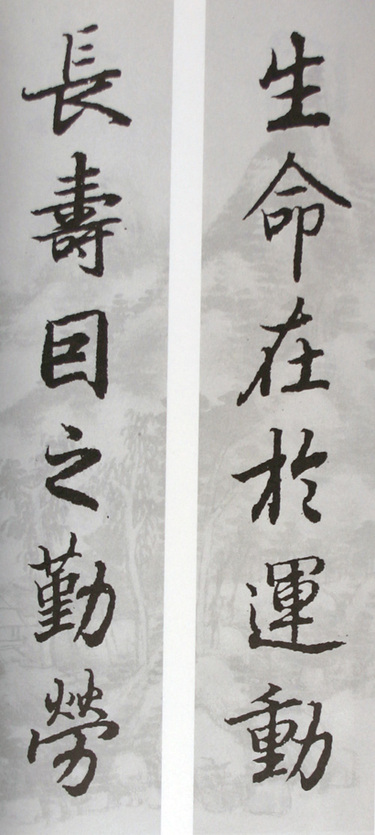 生命在於運動
長壽囙之勤勞